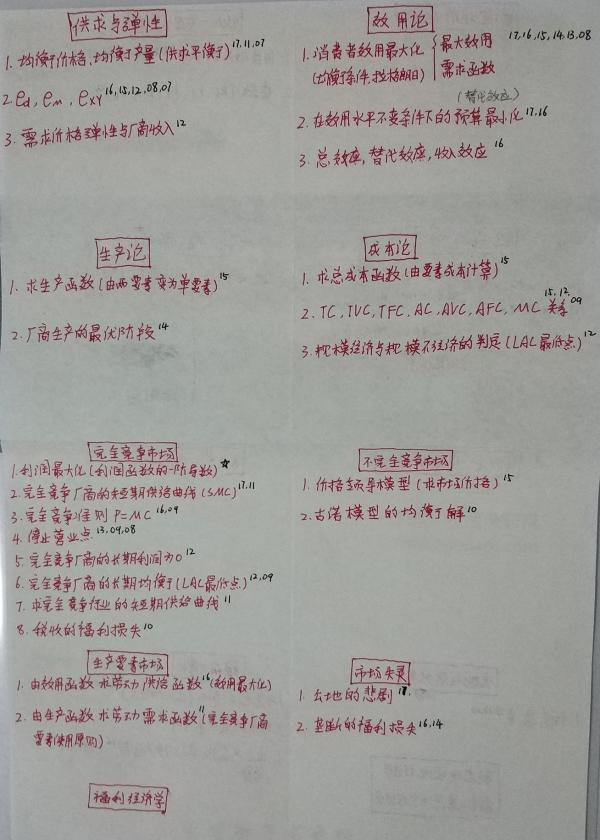 供求与弹性
1. 均衡价格、均衡产量(供求平衡) 17,11,07
2. ed, em, exy 16,15,12,08,07
3. 需求价格弹性与厂商收入 12
效用论
1. 消费者效用最大化 { 最大效用 17,16,15,14,13,08
(均衡条件,拉格朗日) 需求函数
(替代效应)
2. 在效用水平不变条件下的预算最小化 17,16
3. 总效应,替代效应,收入效应 16
生产论
1. 求生产函数(由两要素变为单要素) 15
2. 厂商生产的最优阶段 14
成本论
1. 求总成本函数(由要素成本计算) 15
2. TC,TVC,TFC,AC,AVC,AFC,MC 关系 15,12,09
3. 规模经济与规模不经济的判定(LAC最低点) 12
完全竞争市场
1. 利润最大化(利润函数的一阶导数) ☆
2. 完全竞争厂商的短期供给曲线(SMC) 17,11
3. 完全竞争准则 P=MC 16,09
4. 停止营业点 13,09,08
5. 完全竞争厂商的长期利润为0 12
6. 完全竞争厂商的长期均衡(LAC最低点) 12,09
7. 求完全竞争行业的短期供给曲线 11
8. 税收的福利损失 10
不完全竞争市场
1. 价格领导模型(求市场价格) 15
2. 古诺模型的均衡解 10
生产要素市场
1. 由效用函数求劳动供给函数 16 (效用最大化)
2. 由生产函数求劳动需求函数 11 (完全竞争厂商
要素使用原则)
市场失灵
1. 公地的悲剧
2. 垄断的福利损失 16,14
福利经济学